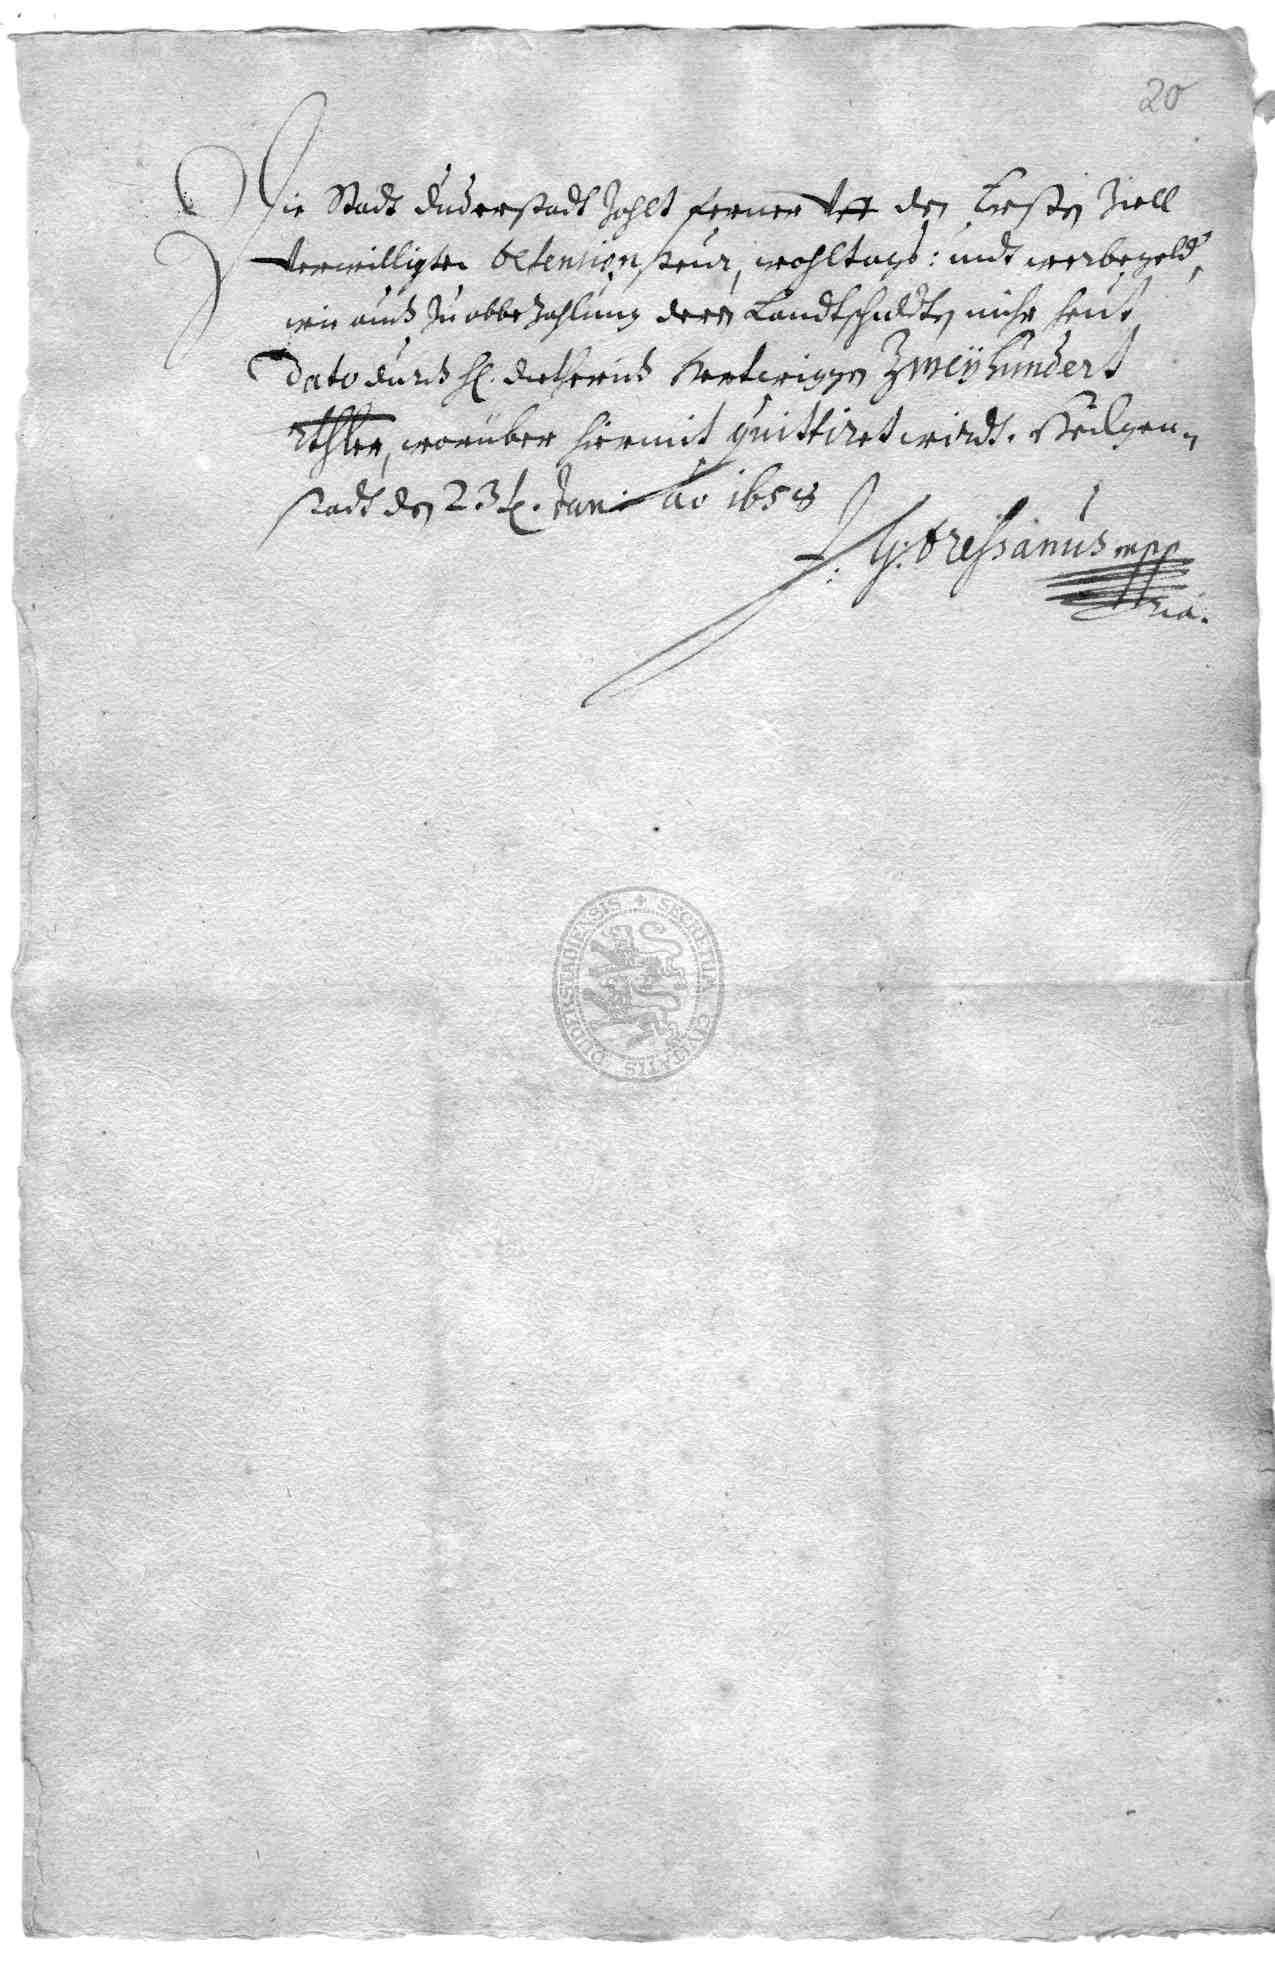 20
Die Stadt Duderstadt zahlt ferner uff den Ersten Ziell
verwilligter defension steur, wahltags: undt werbegeldt,
wie auch zu abbezahlung deren Landtschulden mihr heut
Dato durch H. Dietherich Hertwiggen Zweÿhundert
Rthler, worüber hiermit quittiret wirdt. Heiligen-
stadt den 23t. Jan: ao 1658
J: G: Dressanus mpp
ria.
SECRETUM CIVITATIS DUDERSTADIENSIS